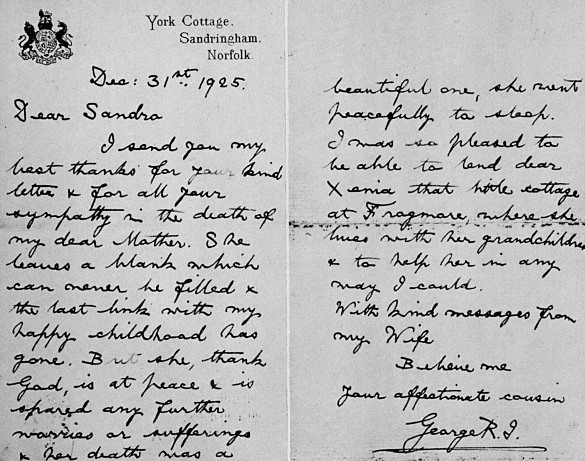 York Cottage,
Sandringham,
Norfolk.
Dec: 31st. 1925.
Dear Sandra
I send you my
best thanks for your kind
letter & for all your
sympathy in the death of
my dear Mother. She
leaves a blank which
can never be filled &
the last link with my
happy childhood has
gone. But she, thank
God, is at peace & is
spared any further
worries or sufferings
& her death was a
beautiful one, she went
peacefully to sleep.
I was so pleased to
be able to lend dear
Xenia that little cottage
at Frogmore, where she
lives with her grandchildren
& to help her in any
way I could.
With kind messages from
my Wife
Believe me
your affectionate cousin
George R.I.